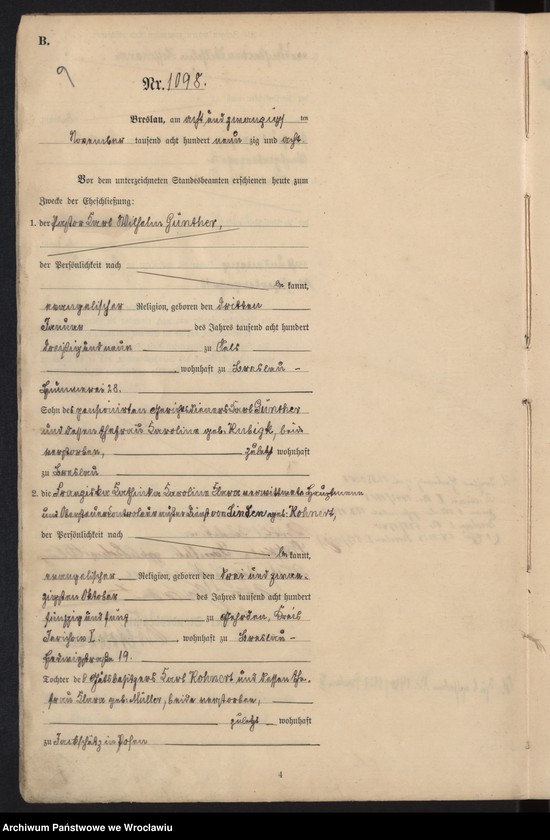 B.
9
Nr. 1098.
Breslau, am acht und zwanzig ten
November tausend acht hundert neun zig und acht.
Vor dem unterzeichneten Standesbeamten erschienen heute zum
Zwecke der Eheschließung:
1. der Pastor Karl Wilhelm Günther,
der Persönlichkeit nach
be kannt,
evangelischer Religion, geboren den dritten
Januar des Jahres tausend acht hundert
dreißig und neun zu Oels
, wohnhaft zu Breslau -
Hummerei 28.
Sohn des pensionirten Gerichtsdieners Karl Günther
und dessen Ehefrau Karoline geb. Kubigk, beide
verstorben, zuletzt wohnhaft
zu Breslau
2. die Franziska Kathinka Karoline Klara verwittwete Hauptmann
und Obersteuerkontroleur außer Dienst von Linden, geb. Kohnert,
der Persönlichkeit nach
be kannt,
evangelischer Religion, geboren den drei und zwan-
zigsten Oktober des Jahres tausend acht hundert
fünfzig und fünf zu Kreis
Jerichow I., wohnhaft zu Breslau -
Hedwigstraße 19.
Tochter des Gutsbesitzers Karl Kohnert und dessen Ehe-
frau Klara geb. Müller, beide verstorben,
zuletzt wohnhaft
zu in Posen
4
Archiwum Państwowe we Wrocławiu